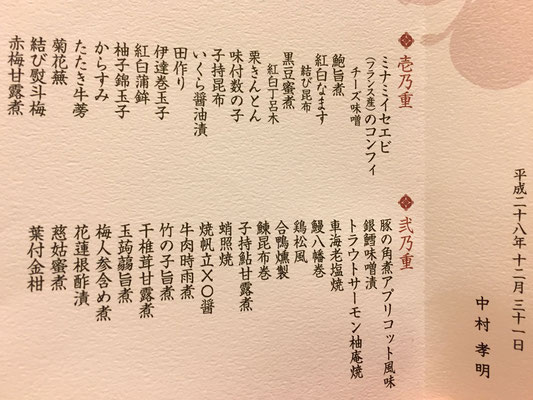 平成二十八年十二月三十一日
中村 孝明
壱乃重
ミナミイセエビ
(フランス産)のコンフィ
チーズ味噌
鮑旨煮
紅白なます
結び昆布
黒豆蜜煮
紅白丁呂木
栗きんとん
味付数の子
子持昆布
いくら醤油漬
田作り
伊達巻玉子
紅白蒲鉾
柚子錦玉子
からすみ
たたき牛蒡
菊花蕪
結び熨斗梅
赤梅甘露煮
弐乃重
豚の角煮アプリコット風味
銀鱈味噌漬
トラウトサーモン柚庵焼
車海老塩焼
鰻八幡巻
鶏松風
合鴨燻製
鰊昆布巻
子持鮎甘露煮
蛸照焼
焼帆立XO醤
牛肉時雨煮
竹の子旨煮
干椎茸甘露煮
玉蒟蒻旨煮
梅人参含め煮
花蓮根酢漬
慈姑蜜煮
葉付金柑